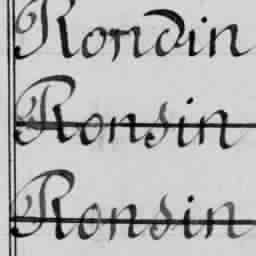 Rondin
Ronsin
Ronsin